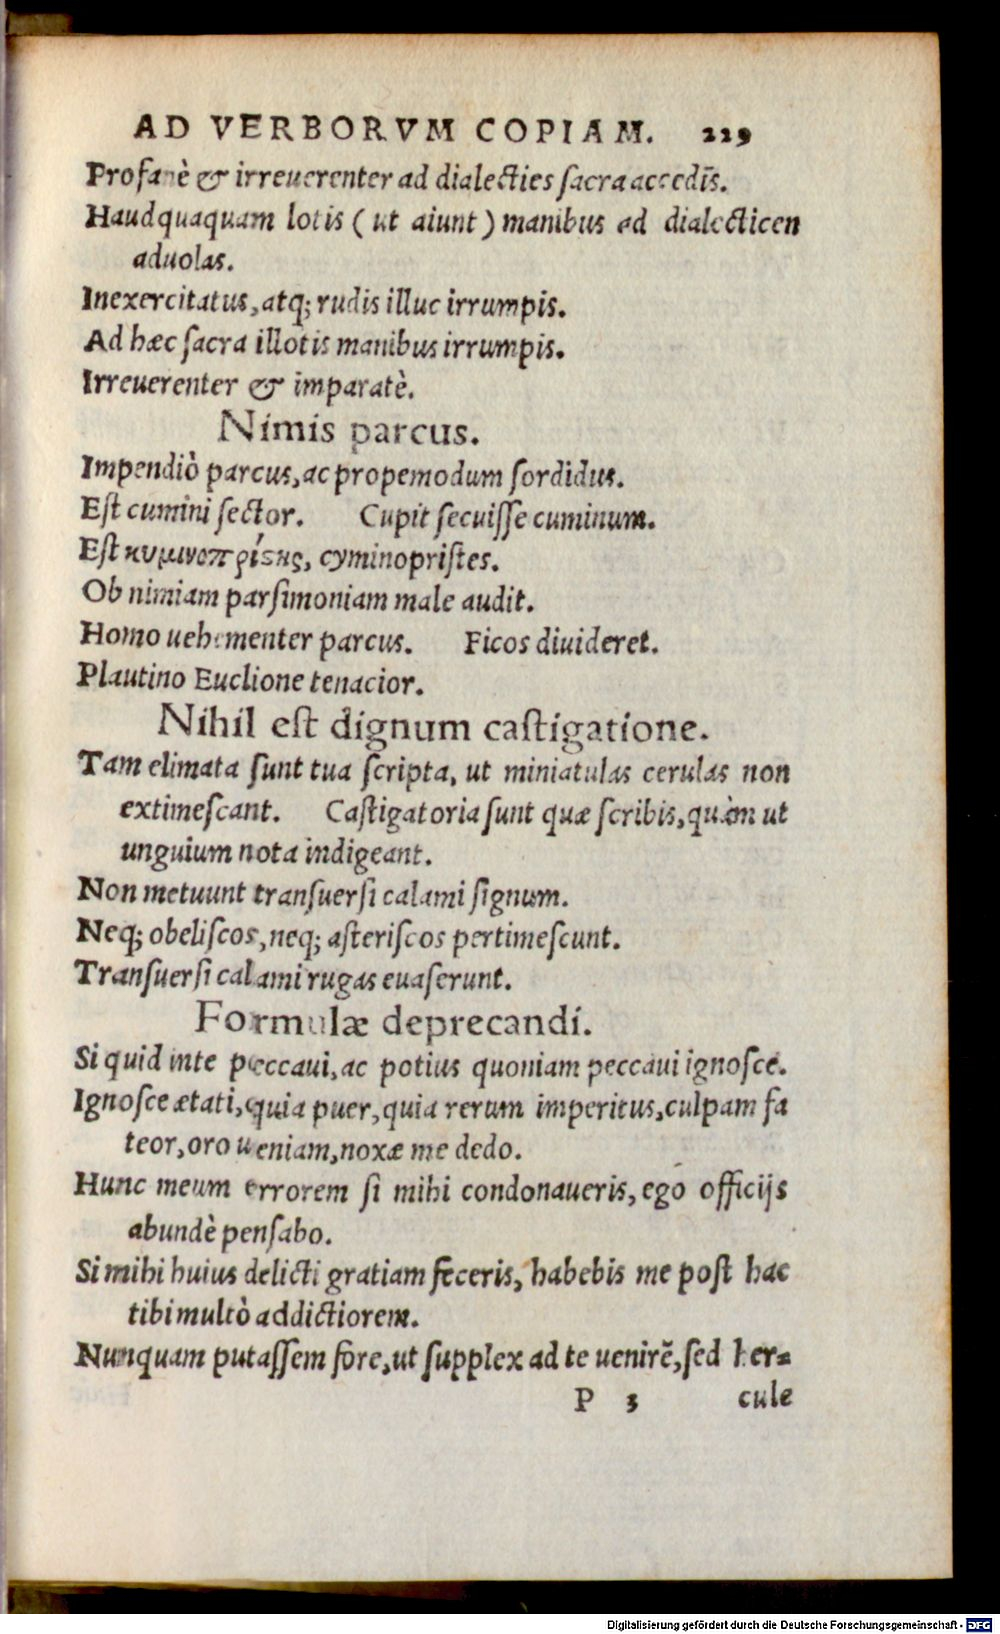 AD VERBORVM COPIAM. 229
Profanè & irreuerenter ad dialectices sacra accedis.
Haudquaquam lotis (ut aiunt) manibus ad dialecticen
aduolas.
Inexercitatus, atq; rudis illuc irrumpis.
Ad hæc sacra illotis manibus irrumpis.
Irreuerenter & imparatè.
Nimis parcus.
Impendiò parcus, ac propemodum sordidus.
Est cumini sector. Cupit secuisse cuminum.
Est κυμινοπρίϛης, cyminopristes.
Ob nimiam parsimoniam male audit.
Homo uehementer parcus. Ficos diuideret.
Plautino Euclione tenacior.
Nihil est dignum castigatione.
Tam elimata sunt tua scripta, ut miniatulas cerulas non
extimescant. Castigatoria sunt quæ scribis, quàm ut
unguium nota indigeant.
Non metuunt transuersi calami signum.
Neq; obeliscos, neq; asteriscos pertimescunt.
Transuersi calami rugas euaserunt.
Formulæ deprecandi.
Si quid inte peccaui, ac potius quoniam peccaui ignosce.
Ignosce ætati, quia puer, quia rerum imperitus, culpam fa
teor, oro ueniam, noxæ me dedo.
Hunc meum errorem si mihi condonaueris, ego officijs
abundè pensabo.
Si mihi huius delicti gratiam feceris, habebis me post hac
tibi multò addictiorem.
Nunquam putassem fore, ut supplex ad te uenirẽ, sed her=
P 3 cule
Digitalisierung gefördert durch die Deutsche Forschungsgemeinschaft - DFG